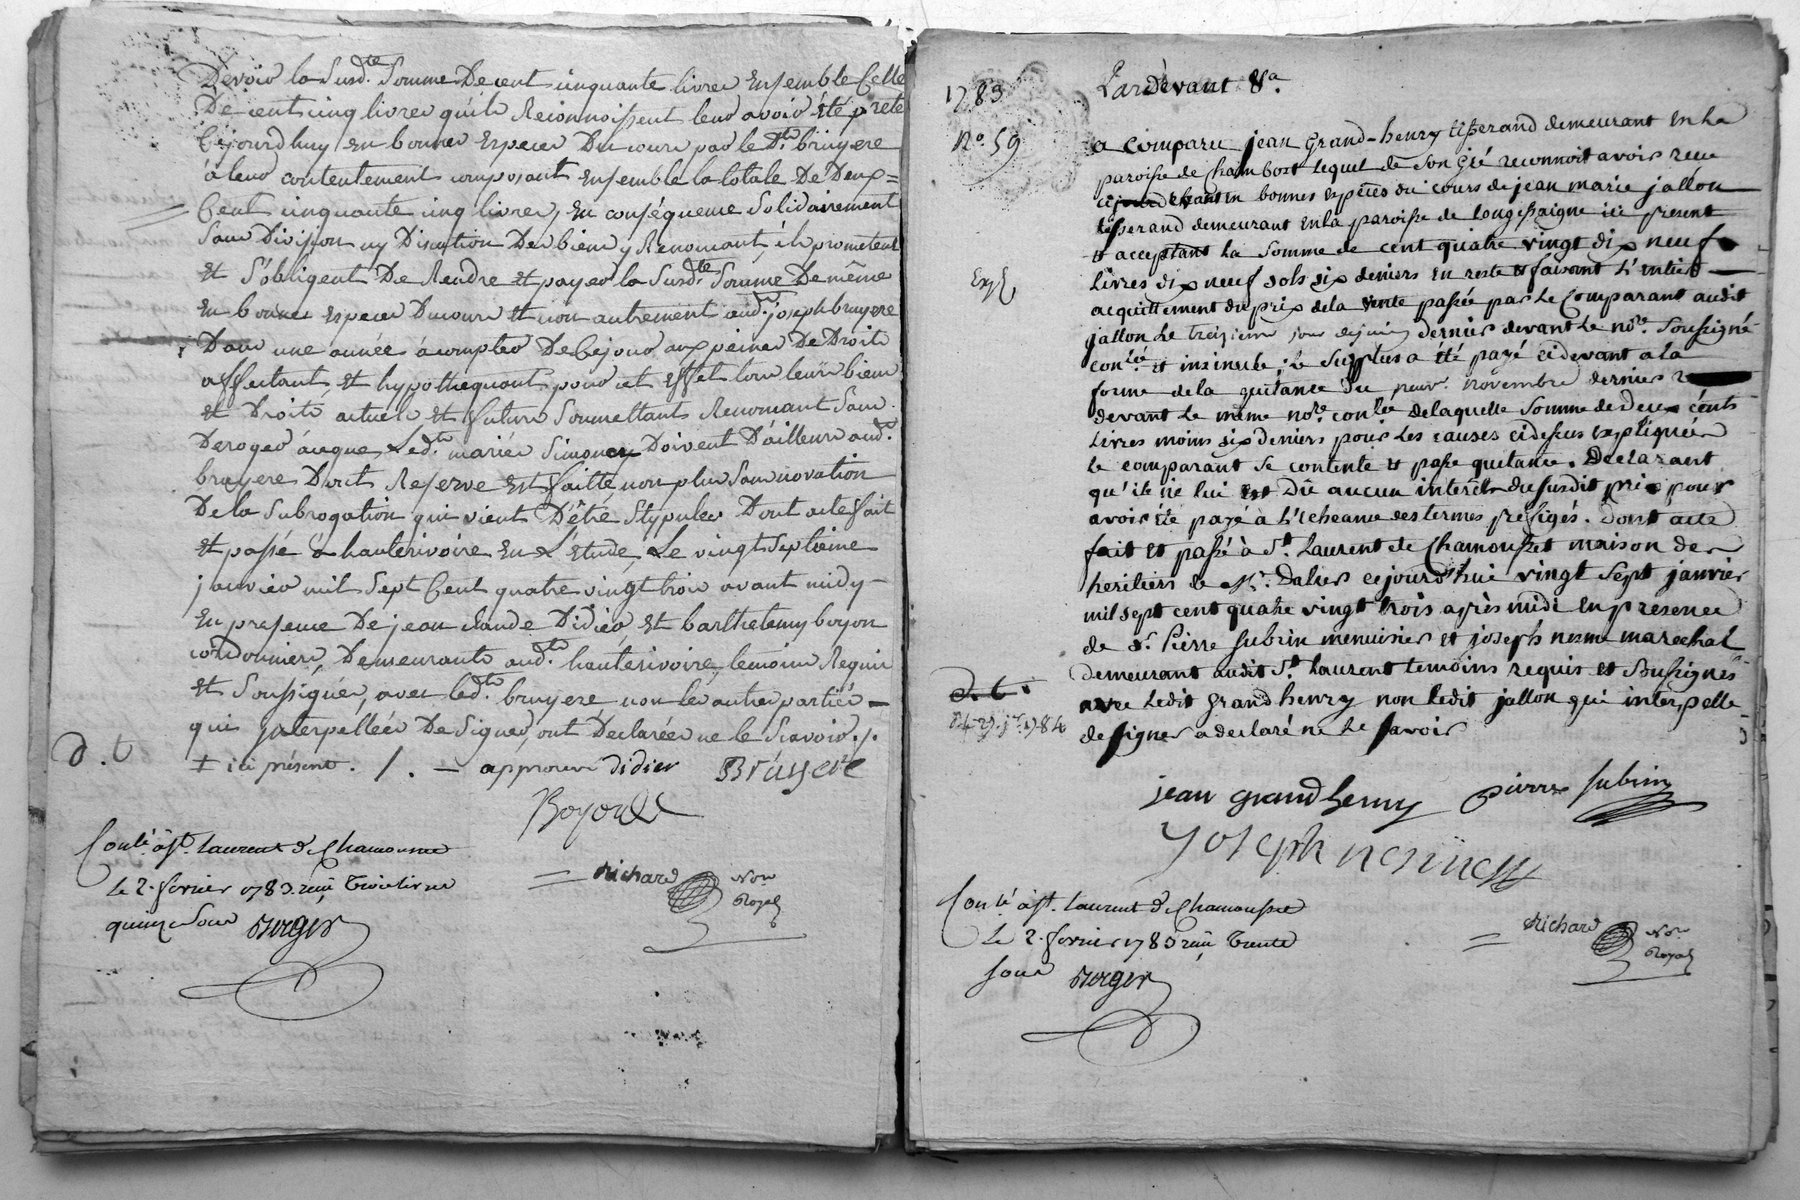 Devoir la Susd.te Somme De cent cinquante livres Ensemble Celle
De cent cinq livres qu'ils Reconnoissent leur avoir été prêté
Cejourd'huy en bonnes especes Du cours par le Dt. bruyere
à leur contentement composant Ensemble la totale De Deux=
Cent cinquante cinq livres, En conséquence Solidairement
Sans Division ny Discution De biens y Renonçant, ils promettent
et S'obligent De Rendre et payer la Susd.te Somme De même
en bonnes especes Du cours et non autrement aud.t joseph bruyere
Dans une année à compter De Cejour, aux peines De Droit
affectant et hypothequant pour cet Effet tous leurs biens
et Droits actuels et futurs Soumettants Renonçant Sans
Deroger à ce que Led.ts mariés Simon Doivent D'ailleurs aud.t
bruyere Dont Reserve est faitte non plus Sans novation
De la Subrogation qui vient D'être Stypulée Dont acte fait
et passé à hauterivoire en L'étude, Le vingt Septieme
janvier mil Sept Cent quatre vingt trois avant midy
En presence De jean claude Didier et barthelemy boyon
cordonniers, Demeurants aud.t hauterivoire, temoins Requis
et Soussignés, avec led.t bruyere non les autres parties
qui interpellées De Signer, ont Declarées ne le Scavoir ./.
D . t
+ ici présent . / . — approuvé didier Bruyere
Boyon
Con.lé à St. Laurent de Chamousset
Le 2. fevrier 1783 reçu Trois livres
quinze sous Berger
= Richard Not.re Royal
1783
N.o 59
Pardevant &.a
a comparu jean Grand-henry tisserand demeurant en la
paroisse de Chambost lequel de son gré reconnoit avoir reçu
cejourd'hui en bonnes especes du cours de jean marie jallon
tisserand demeurant en la paroisse de Longessaigne ici present
et acceptant la Somme de cent quatre vingt dix neuf
Exp.
Livres dix neuf sols six deniers en reste et faisant L'entier
acquittement du prix de la vente passée par Le Comparant audit
jallon Le treizieme jour de juin dernier devant Le no.re Soussigné
con.lée et insinuée ; Le Surplus a été payé ci devant a la
forme de la quitance du neuv.e novembre dernier
devant Le même no.re con.lée de laquelle Somme de deux cents
Livres moins six deniers pour les causes ci dessus expliquées
Le comparant Se contente et passe quitance. Declarant
qu'il ne lui est Dû aucun interêt du susdit prix pour
avoir été payé à L'echeance des termes prefigés. Dont acte
fait et passé à St. Laurent de Chamousset maison des
heritiers de Mr. Dalier cejourd'hui vingt sept janvier
mil sept cent quatre vingt trois après midi en presence
de Sr. Pierre Subrin menuisier et joseph nesme marechal
demeurant audit St. Laurent temoins requis et Soussignés
D. t.
avec Ledit Grand henry non ledit jallon qui interpellé
1784
de signer a declaré ne Le Savoir
jean grandhenry Pierre Subrin
Con.lé à St. Laurent de Chamousset
Le 2. fevrier 1783 reçu Trente
sous Berger
= Richard Not.re Royal